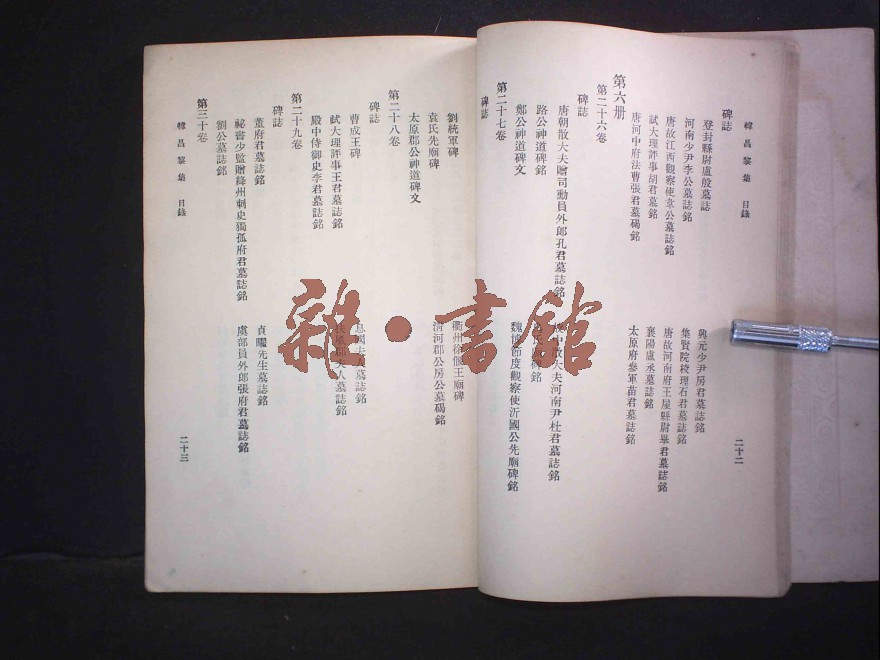 韓昌黎集 目錄 二十二
碑誌
登封縣尉盧殷墓誌 興元少尹房君墓誌銘
河南少尹李公墓誌銘 集賢院校理石君墓誌銘
唐故江西觀察使韋公墓誌銘 唐故河南府王屋縣尉畢君墓誌銘
試大理評事胡君墓銘 襄陽盧丞墓誌銘
唐河中府法曹張君墓碣銘 太原府參軍苗君墓誌銘
第六册
第二十六卷
碑誌
唐朝散大夫贈司勳員外郎孔君墓誌銘 中散大夫河南尹杜君墓誌銘
路公神道碑銘 氏 碑銘
鄭公神道碑文 魏博節度觀察使沂國公先廟碑銘
第二十七卷
碑誌
劉統軍碑 衢州徐偃王廟碑
袁氏先廟碑 清河郡公房公墓碣銘
太原郡公神道碑文
第二十八卷
碑誌
曹成王碑 息國夫人墓誌銘
試大理評事王君墓誌銘 扶風郡夫人墓誌銘
殿中侍御史李君墓誌銘
第二十九卷
碑誌
董府君墓誌銘 貞曜先生墓誌銘
祕書少監贈絳州刺史獨孤府君墓誌銘 虞部員外郎張府君墓誌銘
劉公墓誌銘
第三十卷
韓昌黎集 目錄 二十三
雜·書館